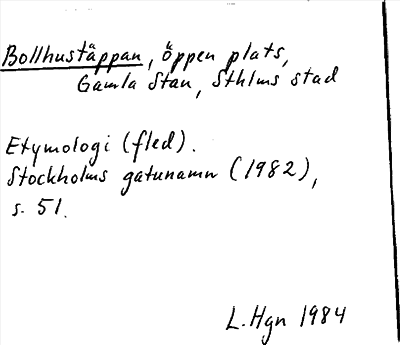 Bollhustäppan, öppen plats,
Gamla Stan, Sthlms stad
Etymologi (fled).
Stockholms gatunamn (1982),
s. 51.
L. Hgn 1984